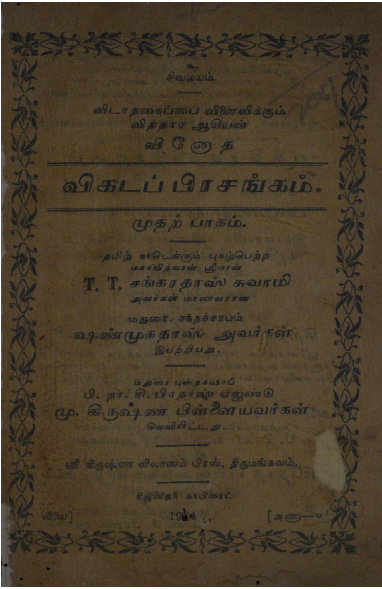 உ
சிவமயம்.
விடாநகைப்பை விளைவிக்கும்
வித்தார ஆசியன்
வினோத
விகடப் பிரசங்கம்.
முதற் பாகம்.
தமிழ் நாடெங்கும் புகழ்பெற்ற
மகாவித்வான் ஸ்ரீமான்
T. T. சங்கரதாஸ் சுவாமி
அவர்கள் மாணவரான
மதுரை.
ஷண்முகதாஸ் அவர்கள்
இயற்றியது.
மதுரை புஸ்தகஷாப்
பி. நா. கி. பிரதர்ஸ் ஏஜண்டு
மு. கிருஷ்ண பிள்ளையவர்கள்
வெளியிட்டது.
ஸ்ரீ கிருஷ்ண விலாஸம் பிரஸ், திருமங்கலம்.
ரிஜிஸ்தர் காபிரைட்
விலை] [அணா